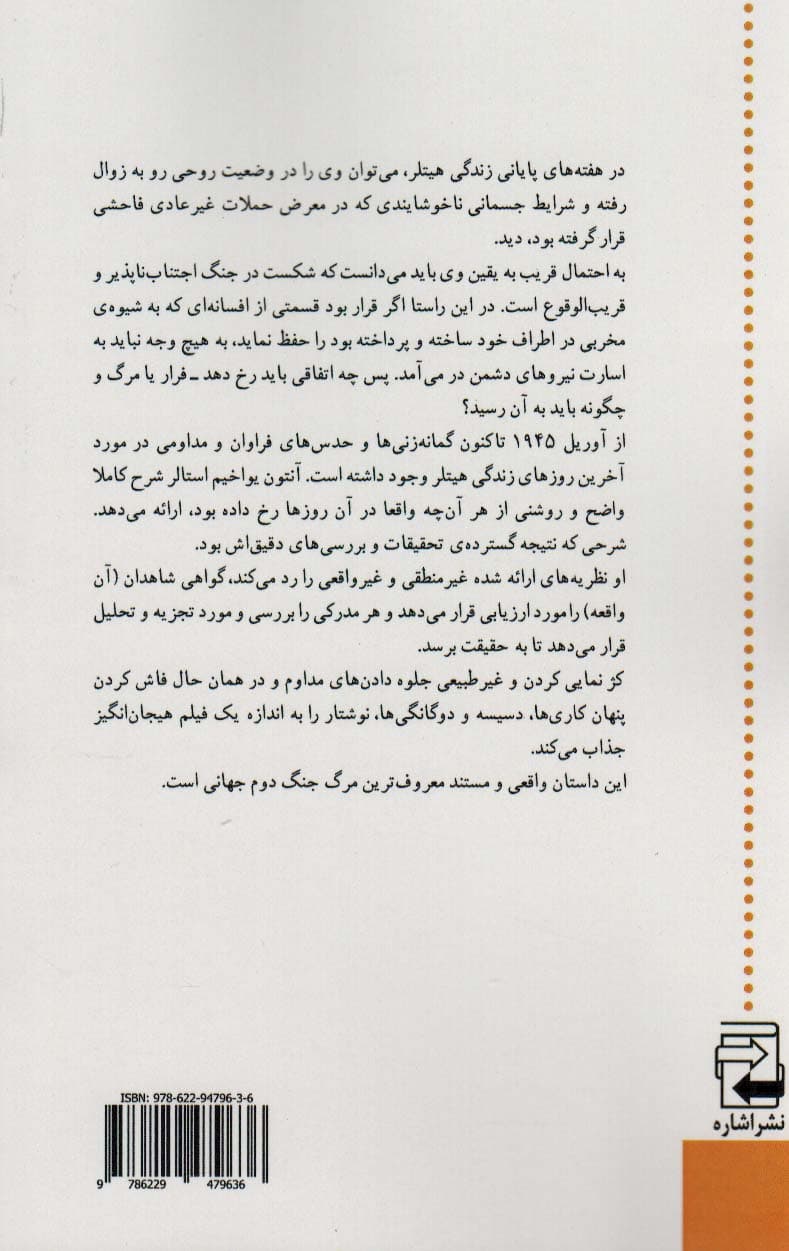 در هفته‌های پایانی زندگی هیتلر، می‌توان وی را در وضعیت روحی رو به زوال
رفته و شرایط جسمانی ناخوشایندی که در معرض حملات غیرعادی فاحشی
قرار گرفته بود، دید.
به احتمال قریب به یقین وی باید می‌دانست که شکست در جنگ اجتناب‌ناپذیر و
قریب‌الوقوع است. در این راستا اگر قرار بود قسمتی از افسانه‌ای که به شیوه‌ی
مخربی در اطراف خود ساخته و پرداخته بود را حفظ نماید، به هیچ وجه نباید به
اسارت نیروهای دشمن در می‌آمد. پس چه اتفاقی باید رخ دهد ـ فرار یا مرگ و
چگونه باید به آن رسید؟
از آوریل ۱۹۴۵ تاکنون گمانه‌زنی‌ها و حدس‌های فراوان و مداومی در مورد
آخرین روزهای زندگی هیتلر وجود داشته است. آنتون یواخیم استالر شرح کاملا
واضح و روشنی از هر آن‌چه واقعا در آن روزها رخ داده بود، ارائه می‌دهد.
شرحی که نتیجه گسترده‌ی تحقیقات و بررسی‌های دقیق‌اش بود.
او نظریه‌های ارائه شده غیرمنطقی و غیرواقعی را رد می‌کند، گواهی شاهدان (آن
واقعه) را مورد ارزیابی قرار می‌دهد و هر مدرکی را بررسی و مورد تجزیه و تحلیل
قرار می‌دهد تا به حقیقت برسد.
کژ نمایی کردن و غیرطبیعی جلوه دادن‌های مداوم و در همان حال فاش کردن
پنهان کاری‌ها، دسیسه و دوگانگی‌ها، نوشتار را به اندازه یک فیلم هیجان‌انگیز
جذاب می‌کند.
این داستان واقعی و مستند معروف‌ترین مرگ جنگ دوم جهانی است.
نشر اشاره
ISBN: 978-622-94796-3-6
9 786229 479636